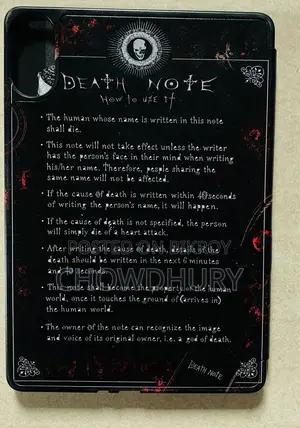 DEATH NOTE
HOW TO USE IT
• The human whose name is written in this note
shall die.
• This note will not take effect unless the writer
has the person's face in their mind when writing
his/her name. Therefore, people sharing the
same name will not be affected.
• If the cause of death is written within 40 seconds
of writing the person's name, it will happen.
• If the cause of death is not specified, the person
will simply die of a heart attack.
POSTED ON BIKROY
• After writing the cause of death, details of the
death should be written in the next 6 minutes
and 40 seconds.
CHOWDHURY
• This note shall become the property of the human
world, once it touches the ground of (arrives in)
the human world.
• The owner of the note can recognize the image
and voice of its original owner, i.e. a god of death.
DEATH NOTE